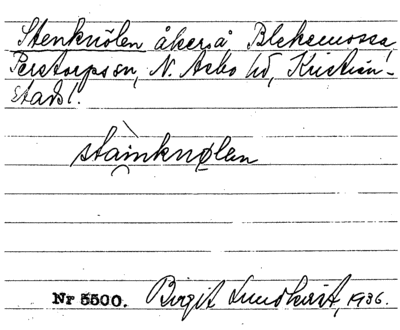 Stenknölen åker å Blekemossa,
Perstorps sn, N. Åsbo hd, Kristian-
stads l.
stàinknølen
Nr 5500. Birgit Lundkvist, 1936.